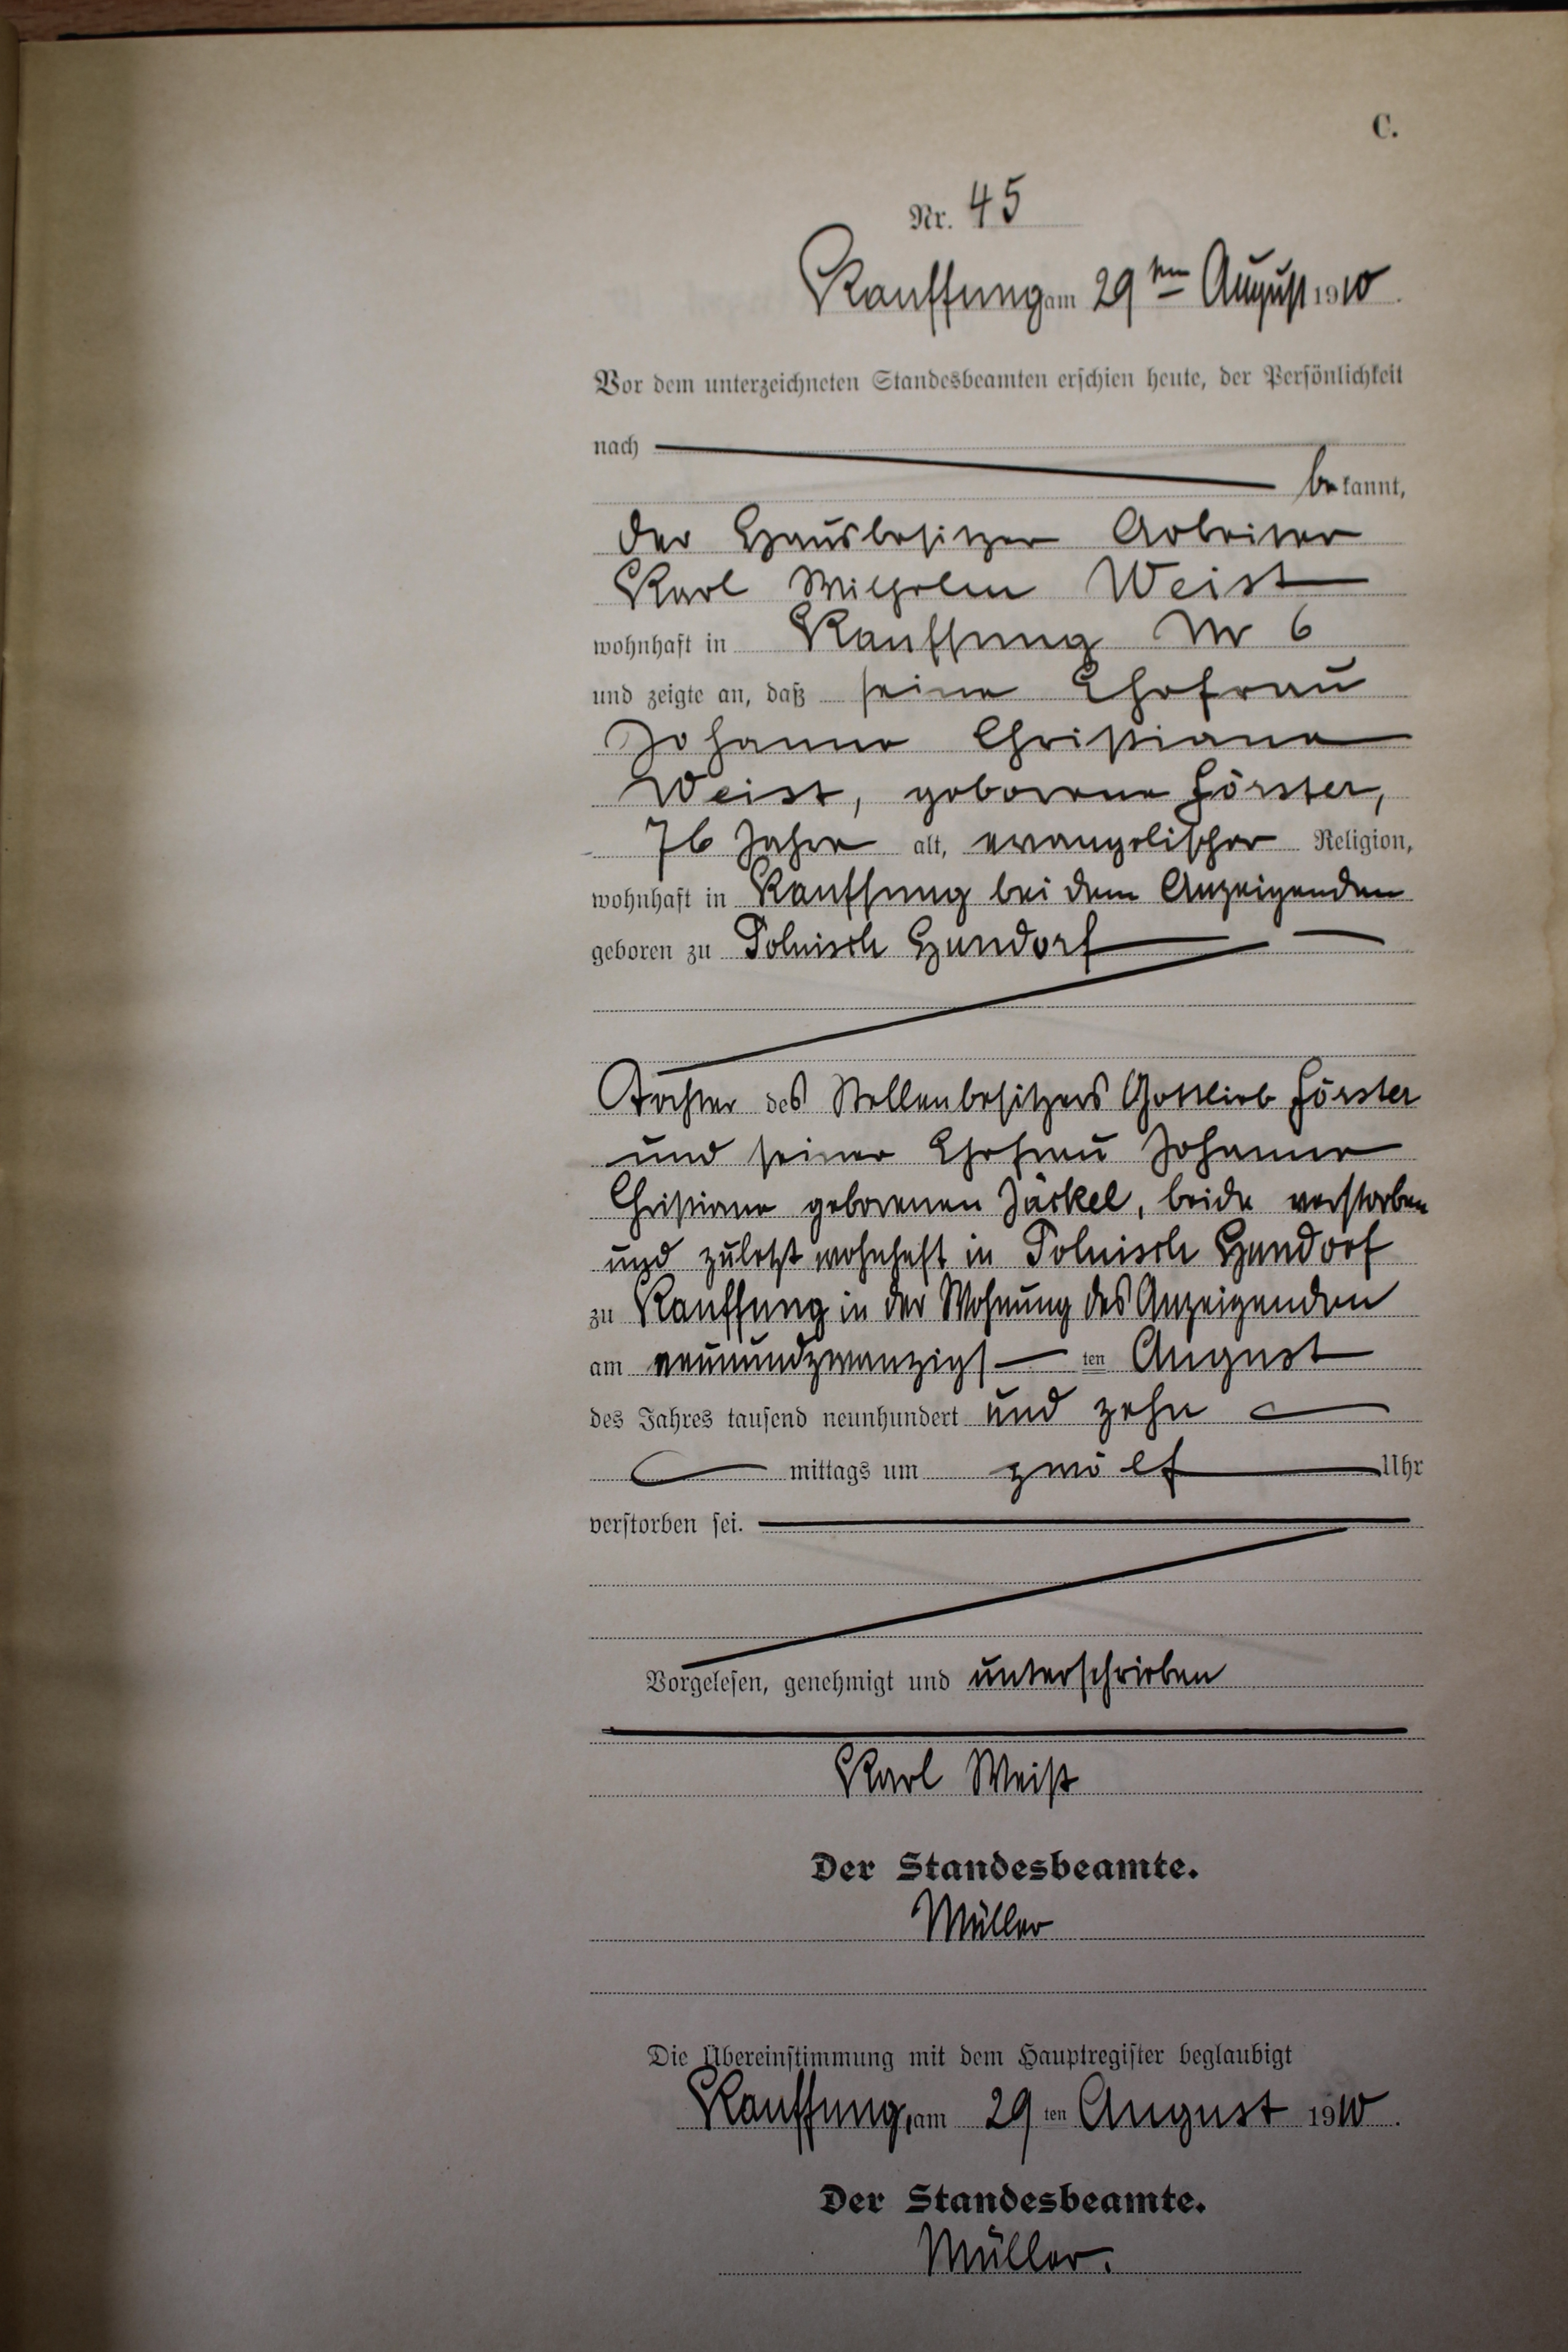 C.
Nr. 45
Kauffung am 29ten August 1910.
Vor dem unterzeichneten Standesbeamten erschien heute, der Persönlichkeit
nach
bekannt,
der Hausbesitzer Arbeiter
Karl Wilhelm Weist
wohnhaft in Kauffung Nr 6
und zeigte an, daß seine Ehefrau
Johanne Christiane
Weist, geborene Förster,
76 Jahre alt, evangelischer Religion,
wohnhaft in Kauffung bei dem Anzeigenden
geboren zu Polnisch Hundorf
Tochter des Stellenbesitzers Gottlieb Förster
und seiner Ehefrau Johanne
Christiane geborenen Jäckel, beide verstorben
und zuletzt wohnhaft in Polnisch Hundorf
zu Kauffung in der Wohnung des Anzeigenden
am neunundzwanzigs ten August
des Jahres tausend neunhundert und zehn
mittags um zwölf Uhr
verstorben sei.
Vorgelesen, genehmigt und unterschrieben
Karl Weist
Der Standesbeamte.
Müller
Die Übereinstimmung mit dem Hauptregister beglaubigt
Kauffung, am 29 ten August 1910.
Der Standesbeamte.
Müller.